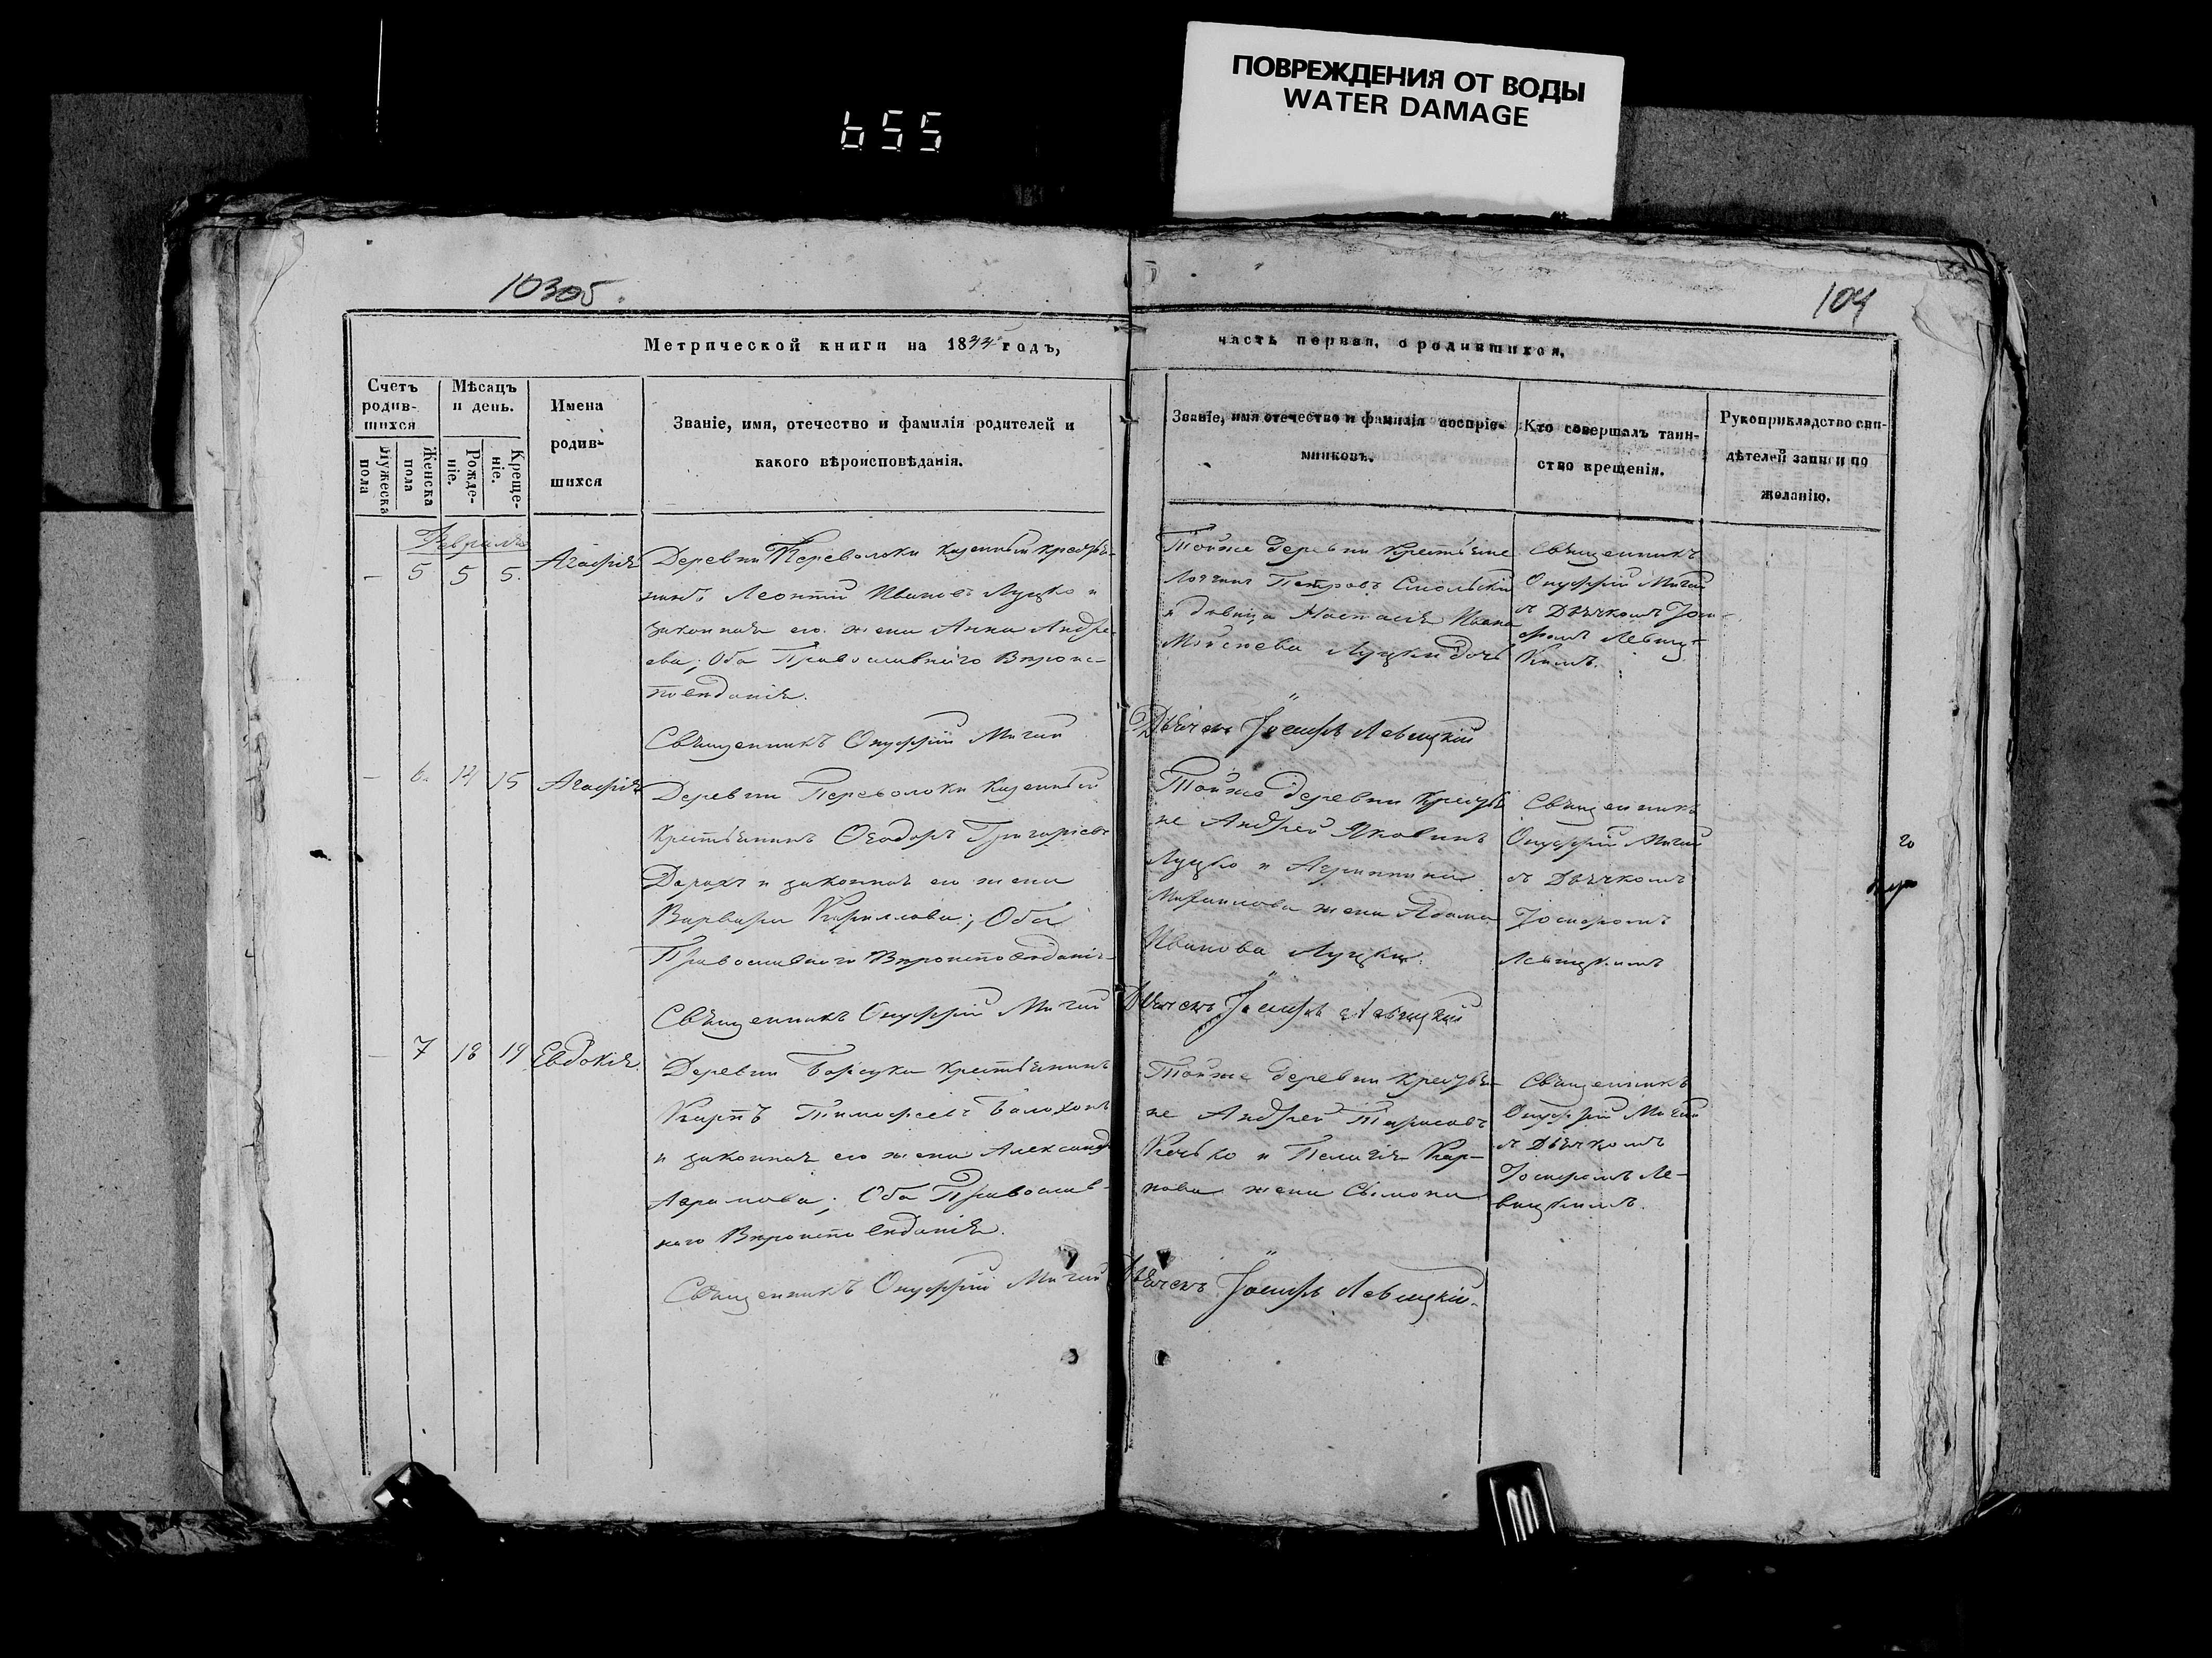 ПОВРЕЖДЕНИЯ ОТ ВОДЫ
WATER DAMAGE
655
10305.
104
Метрической книги на 1844 годъ,
часть первая, о родившихся.
Счетъ родив-шихся
Мужеска пола
Женска пола
Мѣсяцъ и день.
Рожде-ніе.
Креще-ніе.
Имена родив-шихся
Званіе, имя, отечество и фамилія родителей и
какого вѣроисповѣданія.
Званіе, имя отечество и фамилія воспріе-
мниковъ.
Кто совершалъ таин-
ство крещенія.
Рукоприкладство сви-
дѣтелей записи по
желанію.
Февраля
5 5 5. Агафія
Деревни Переволоки казенный крестья-
нинъ Леонтій Ивановъ Луцко и
законная его жена Анна Андре-
ева; Оба Православнаго Вѣроис-
повѣданія.
Священникъ Онуфрій Мигай
Тойже деревни Крестьяне
Логгинъ Петровъ Смольскій
и дѣвица Настасія Ивана
Моисеева Луцки дочь
Священникъ
Онуфрій Мигай
съ Дьячкомъ Іоси-
фомъ Левиц-
кимъ.
Дьячекъ Іосифъ Левицкій
6. 14 15 Агафія
Деревни Переволоки казенный
Крестьянинъ Ѳеодоръ Григорьевъ
и законная его жена
Варвара Кириллова; Оба
Православнаго Вѣроисповѣданія
Священникъ Онуфрій Мигай
Тойже деревни Крестья
не Андрей Яковлевъ
Луцко и Агриппина
Михаилова жена Адама
Иванова Луцки.
Священникъ
Онуфрій Мигай
съ Дьячкомъ
Іосифомъ
Левицкимъ
Дьячекъ Іосифъ Левицкій
7 18 19 Евдокія
Деревни Борсуки крестьянинъ
Карпъ Тимофеевъ
и законная его жена Александра
Аврамова; Оба Православ-
наго Вѣроисповѣданія.
Священникъ Онуфрій Мигай
Тойже деревни Крестья-
не Андрей Тарасовъ
и Пелагія Кар-
пова жена Сымона
Священникъ
Онуфрій Мигай
съ Дьячкомъ
Іосифомъ Ле-
вицкимъ.
Дьячекъ Іосифъ Левицкій.